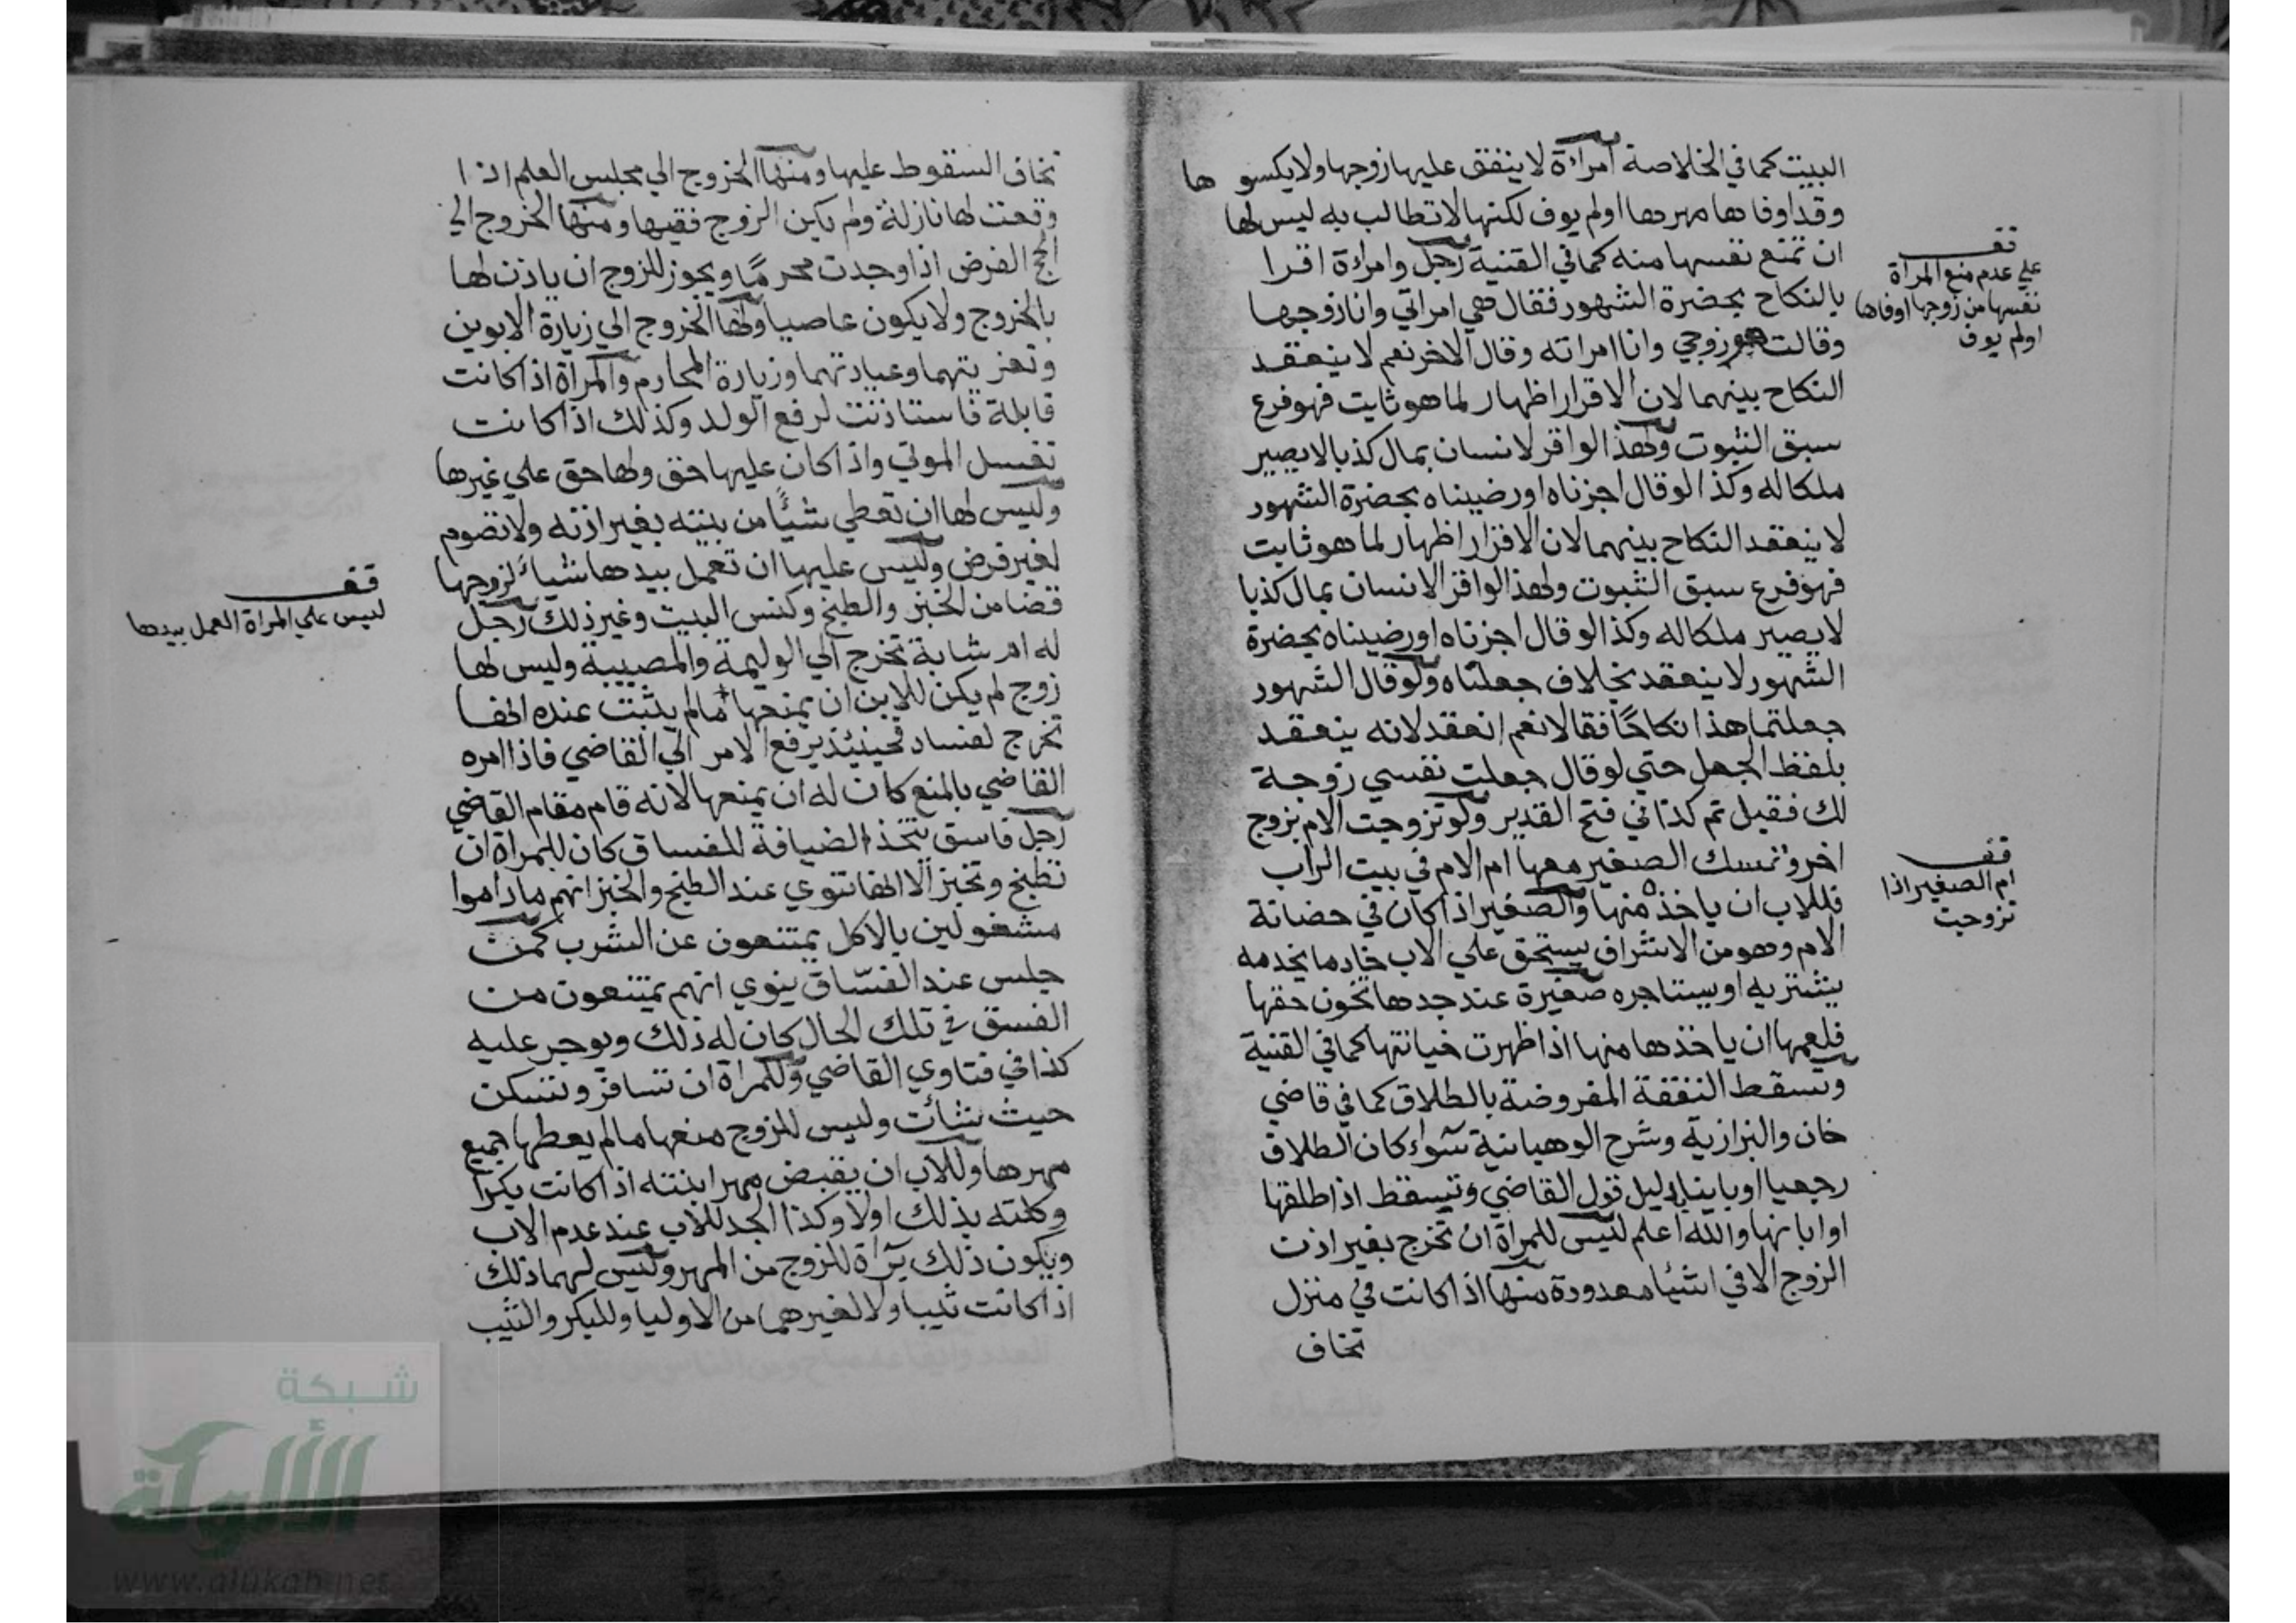 البيت كما في الخلاصة امراءة لا ينفق عليها زوجها ولا يكسو ها
وقد اوفاها مهرها او لم يوف لكنها لا تطالب به ليس لها
ان تمنع نفسها منه كما في القنية رجل وامراءة اقرا
بالنكاح بحضرة الشهور فقال هي امراتي وانا زوجها
وقالت هو زوجي وانا امراته وقال الاخر نعم لا ينعقد
النكاح بينهما لان الاقرار اظهار لما هو ثابت فهو فرع
سبق الثبوت ولهذا لو اقر لانسان بمال كذبا لا يصير
ملكا له وكذا لو قال اجزناه او رضيناه بحضرة الشهور
لا ينعقد النكاح بينهما لان الاقرار اظهار لما هو ثابت
فهو فرع سبق الثبوت ولهذا لو اقر لانسان بمال كذبا
لا يصير ملكا له وكذا لو قال اجزناه او رضيناه بحضرة
الشهور لا ينعقد بخلاف جعلناه ولو قال الشهور
جعلتما هذا نكاحًا فقالا نعم انعقد لانه ينعقد
بلفظ الجعل حتي لو قال جعلت نفسي زوجة
لك فقبل تم كذا في فتح القدير ولو تزوجت الام بزوج
اخر وتمسك الصغير معها ام الام في بيت الراب
فللاب ان ياخذه منها والصغير اذا كان في حضانة
الام وهو من الاشراف يستحق علي الاب خادما يخدمه
يشتريه او يستاجره صغيرة عند جدها تخون حقها
فلعمها ان ياخذها منها اذا ظهرت خيانتها كما في القنية
وتسقط النفقة المفروضة بالطلاق كما في قاضي
خان والبزازية وشرح الوهبانية سواء كان الطلاق
رجعيا او باينا بدليل قول القاضي وتسقط اذا طلقها
او ابانها والله اعلم ليس للمراة ان تخرج بغير اذن
الزوج الا في اشيا معدودة منها اذا كانت في منزل
تخاف
قف
علي عدم منع المراة
نفسها من زوجها اوفاها
او لم يوف
قف
ام الصغير اذا
تزوجت
تخاف السقوط عليها ومنها الخروج الي مجلس العلم اذا
وقعت لها نازلة ولم يكن الزوج فقيها ومنها الخروج الي
الحج الفرض اذا وجدت محرمًا ويجوز للزوج ان ياذن لها
بالخروج ولا يكون عاصيا ولها الخروج الي زيارة الابوين
وتعزيتهما وعيادتهما وزيارة المحارم والمراة اذا كانت
قابلة فاستاذنت لرفع الولد وكذلك اذا كانت
تغسل الموتي واذا كان عليها حق ولها حق علي غيرها
وليس لها ان تعطي شيئًا من بيته بغير اذنه ولا تصوم
لغير فرض وليس عليها ان تعمل بيدها شياء لزوجها
قضا من الخبز والطبخ وكنس البيت وغير ذلك رجل
له ام شابة تخرج الي الوليمة والمصيبة وليس لها
زوج لم يكن للابن ان يمنعها ما لم يثبت عنده انها
تخرج لفساد فحينيذ يرفع الامر الي القاضي فاذا امره
القاضي بالمنع كان له ان يمنعها لانه قام مقام القاضي
رجل فاسق يتخذ الضيافة للفساق كان للمراة ان
تطبخ وتخبز الا انها تنوي عند الطبخ والخبز انهم ما داموا
مشغولين بالاكل يمتنعون عن الشرب كمن
جلس عند الفسّاق ينوي انهم يمتنعون من
الفسق في تلك الحال كان له ذلك ويوجر عليه
كذا في فتاوي القاضي وللمراة ان تسافر وتسكن
حيث شاءت وليس للزوج منعها ما لم يعطها جميع
مهرها وللاب ان يقبض مهر ابنته اذا كانت بكرا
وكلته بذلك اولا وكذا الجد للاب عند عدم الاب
ويكون ذلك براة للزوج من المهر وليس لهما ذلك
اذا كانت ثيبا ولا لغيرهما من الاوليا وللبكر والثيب
قف
ليس علي المراة العمل بيدها
شبكة
الألوكة
www.alukah.net